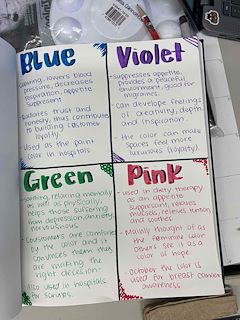 Blue
calming, lowers blood
pressure, decreases
respiration, appetite
suppresent
Radiates trust and
honesty, thus contributes
to building customer
loyalty
Used as the paint
color in hospitals
Violet
suppresses appetite,
provides a peaceful
enviorment, good for
migraines.
Can develop feelings
of creativity, depth
and inspiration.
the color can make
spaces feel more
luxurious (royalty).
Green
soothing, relaxing mentally
as well as physically,
helps those suffering
from depression, anxiety
nervousness
Customers are comforted
by the color and it
convinces them they
are making the
"right decision"
Also used in hospitals
for scrubs.
Pink
used in diety therapy
as an appetite
suppressant, relaxes
muscles, relieves tension
and soothes
Mainly thought of as
the feminine color
others see it as a
color of hope
October the color is
used for breast cancer
awareness